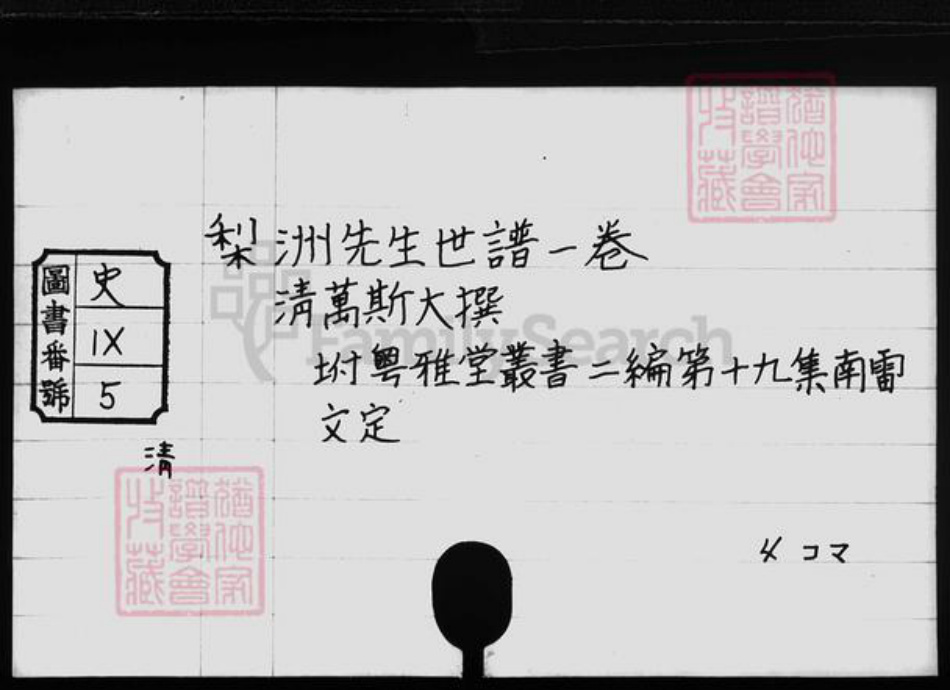 梨洲先生世譜一卷
清萬斯大撰
坿粤雅堂叢書二編第十九集南雷
文定
圖書番號
史
IX
5
清
4コマ
FamilySearch
猶他家
譜學會
收藏
猶他家
譜學會
收藏